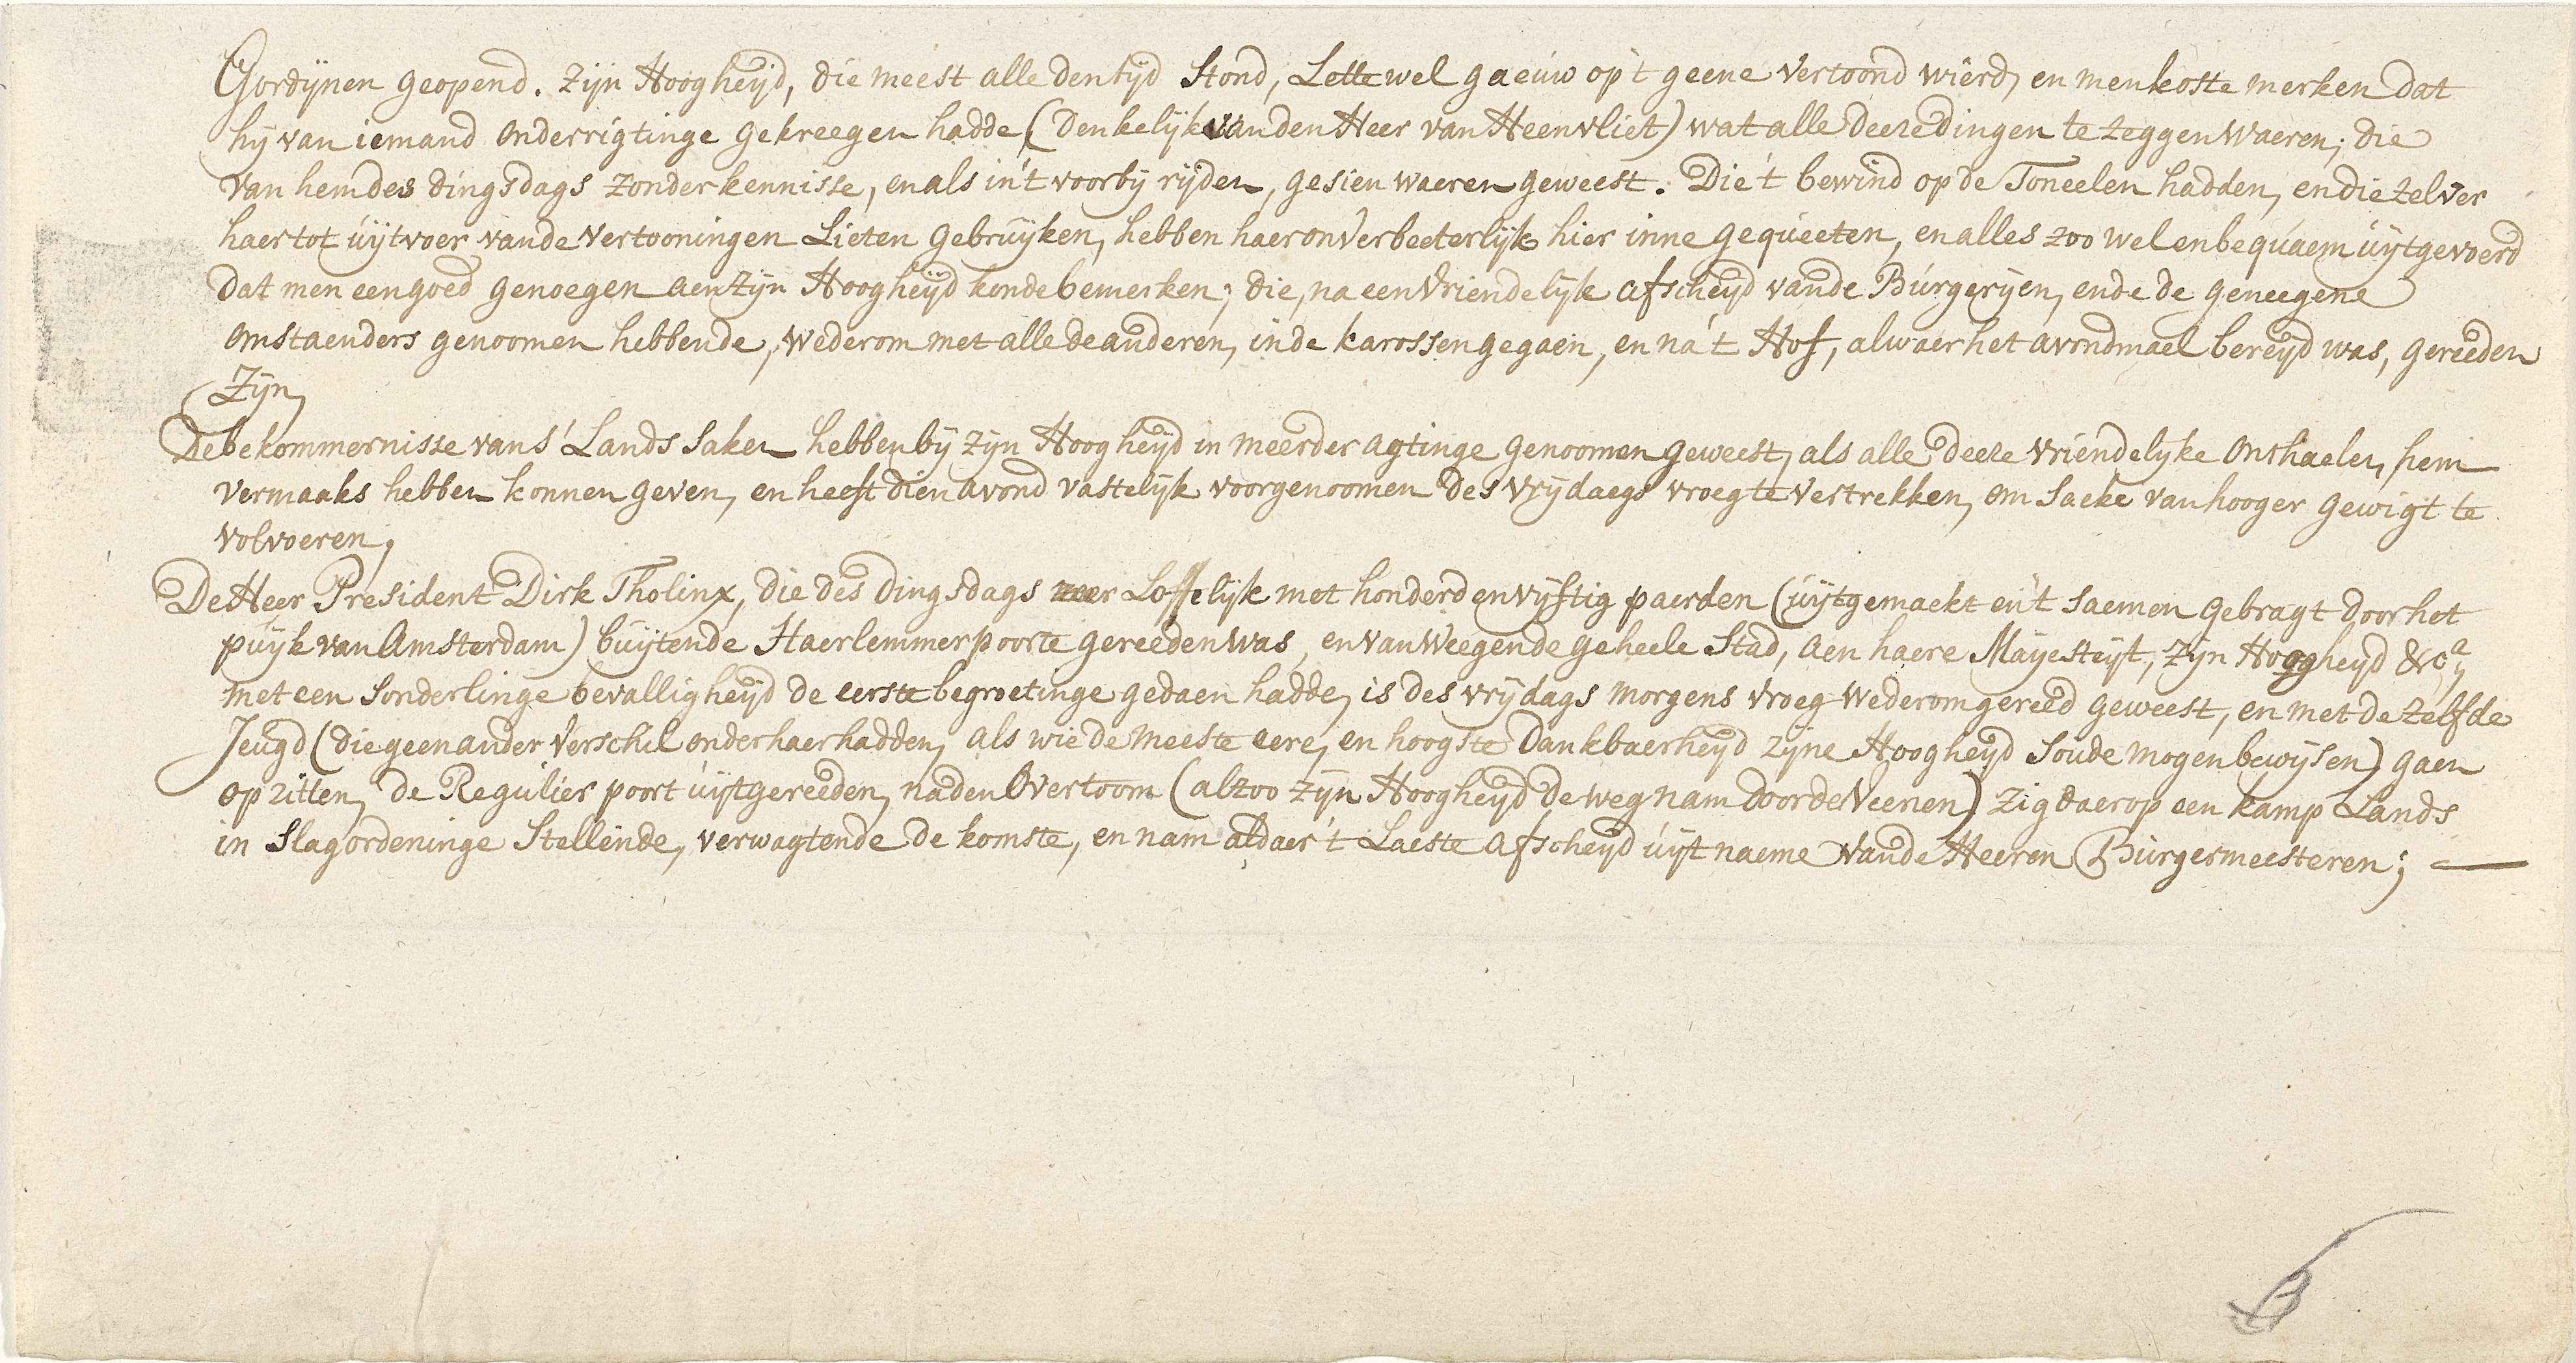 Gordijnen geopend. Zijn Hoogheijd, die meest alle den tijd Stond, Lette wel gaeuw op't geene Vertoond wierd, en men koste merken dat
hij van iemand onderrigtinge gekreegen hadde (denkelijk van den Heer van Heenvliet) wat alle deeze dingen te zeggen waeren; die
van hem des dingsdags zonder kennisse, en als in't voorbij rijden, gesien waeren geweest. Die't bewind op de Toneelen hadden, en die zelver
haer tot uijtvoer van de Vertooningen Lieten gebruijken, hebben haer onverbeeterlijk hier inne gequeeten, en alles zoo wel en bequaem uijtgevoerd
dat men een goed genoegen aen zijn Hoogheijd konde bemerken; die, na een Vriendelijk afscheijd van de Burgerijen, ende de geneegene
omstaenders genoomen hebbende, wederom met alle de anderen, in de karossen gegaen, en na't Hof, alwaer het avondmael bereijd was, gereeden
Zijn,
De bekommernisse van s' Lands Saken hebben bij zijn Hoogheijd in meerder agtinge genoomen geweest, als alle deeze Vriendelijke onthaelen, hem
vermaaks hebben konnen geven, en heeft dien avond vastelijk voorgenoomen des Vrijdaegs vroeg te vertrekken, om Saeke van hooger gewigt te
volvoeren;
De Heer President Dirk Tholinx, die des dingsdags zeer Loffelijk met honderd en vijftig paerden (uijtgemaekt en't saemen gebragt door het
puijk van Amsterdam) buijten de Haerlemmer poorte gereeden was, en van Weegen de geheele Stad, aen haere Mayesteijt, Zijn Hoogheijd &cª,
met een sonderlinge bevalligheijd de eerste begroetinge gedaen hadde, is des vrijdags morgens vroeg wederom gereed geweest, en met de zelfde
Jeugd (die geen ander verschil onder haer hadden, als wie de meeste eere, en hoogste Dankbaerheijd Zijne Hoogheijd Soude mogen bewijsen) gaen
op zitten, de Regulier poort uijtgereeden, na den Overtoom (alzoo zijn Hoogheijd de weg nam door de Veenen) zig daer op een kamp Lands
in Slagordeninge Stellende, verwagtende de komste, en nam aldaer't Laeste afscheijd uijt naeme van de Heeren Burgermeesteren; —